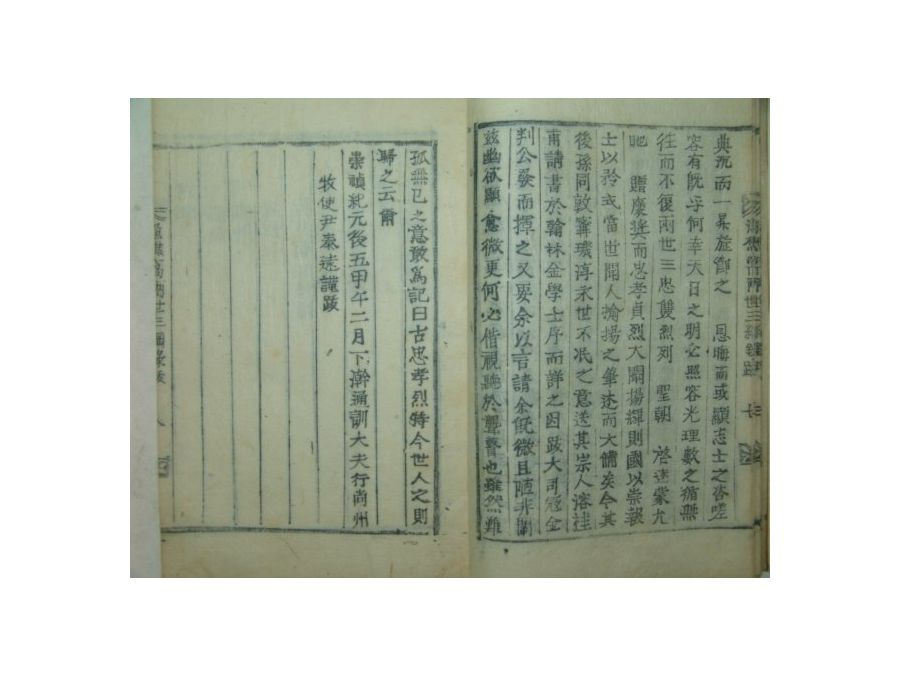 典况而一羃旋爵之 恩晦而或顯志士之咨嗟
容有旣乎何幸天日之明必照容光理數之循無
往而不復兩世三忠雙烈列 聖朝 啓達蒙允
貤贈慶奬而忠孝貞烈大闡揚耀則國以崇報
士以矜式當世聞人揄揚之筆述而大備矣今其
後孫同敦寗璣淳永世不泯之意送其宗人溶
甫請書於翰林金學士序而詳之因跋大司冦金
判公發而揮之又要余以言請余旣微且陋非闡
玆幽欲顯意微更何必借視聽於聾瞽也雖然難
孤無已之意敢爲記曰古忠孝烈特今世人之則
歸之云爾
崇禎紀元後五甲午二月下澣通訓大夫行尙州
牧使尹泰遠謹跋